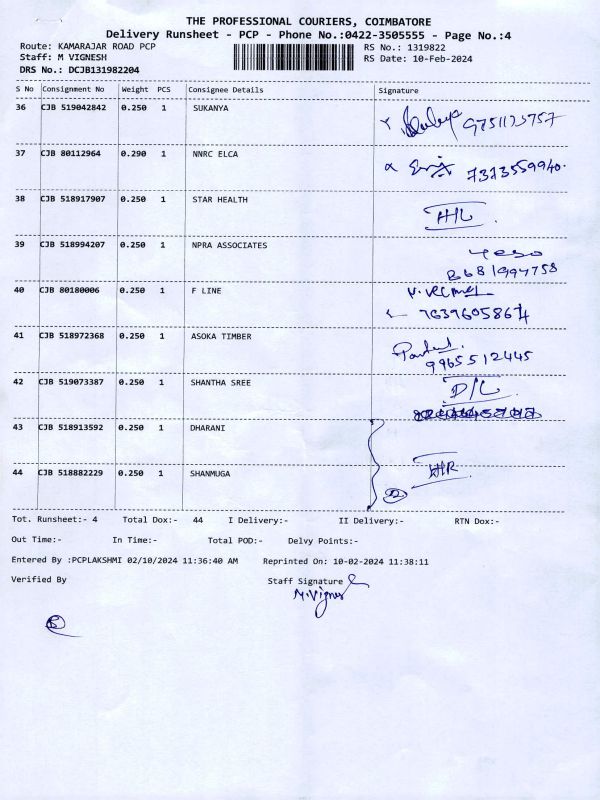 THE PROFESSIONAL COURIERS, COIMBATORE
Delivery Runsheet - PCP - Phone No.:0422-3505555 - Page No.:4
Route: KAMARAJAR ROAD PCP RS No.: 1319822
Staff: M VIGNESH RS Date: 10-Feb-2024
DRS No.: DCJB131982204
S No Consignment No Weight PCS Consignee Details Signature
36 CJB 519042842 0.250 1 SUKANYA
37 CJB 80112964 0.290 1 NNRC ELCA 7373559940.
38 CJB 518917907 0.250 1 STAR HEALTH
39 CJB 518994207 0.250 1 NPRA ASSOCIATES
40 CJB 80180006 0.250 1 F LINE
7639605867
41 CJB 518972368 0.250 1 ASOKA TIMBER
9965512445
42 CJB 519073387 0.250 1 SHANTHA SREE D/L
43 CJB 518913592 0.250 1 DHARANI
44 CJB 518882229 0.250 1 SHANMUGA
Tot. Runsheet:- 4 Total Dox:- 44 I Delivery:- II Delivery:- RTN Dox:-
Out Time:- In Time:- Total POD:- Delvy Points:-
Entered By :PCPLAKSHMI 02/10/2024 11:36:40 AM Reprinted On: 10-02-2024 11:38:11
Verified By Staff Signature
M.Vignes